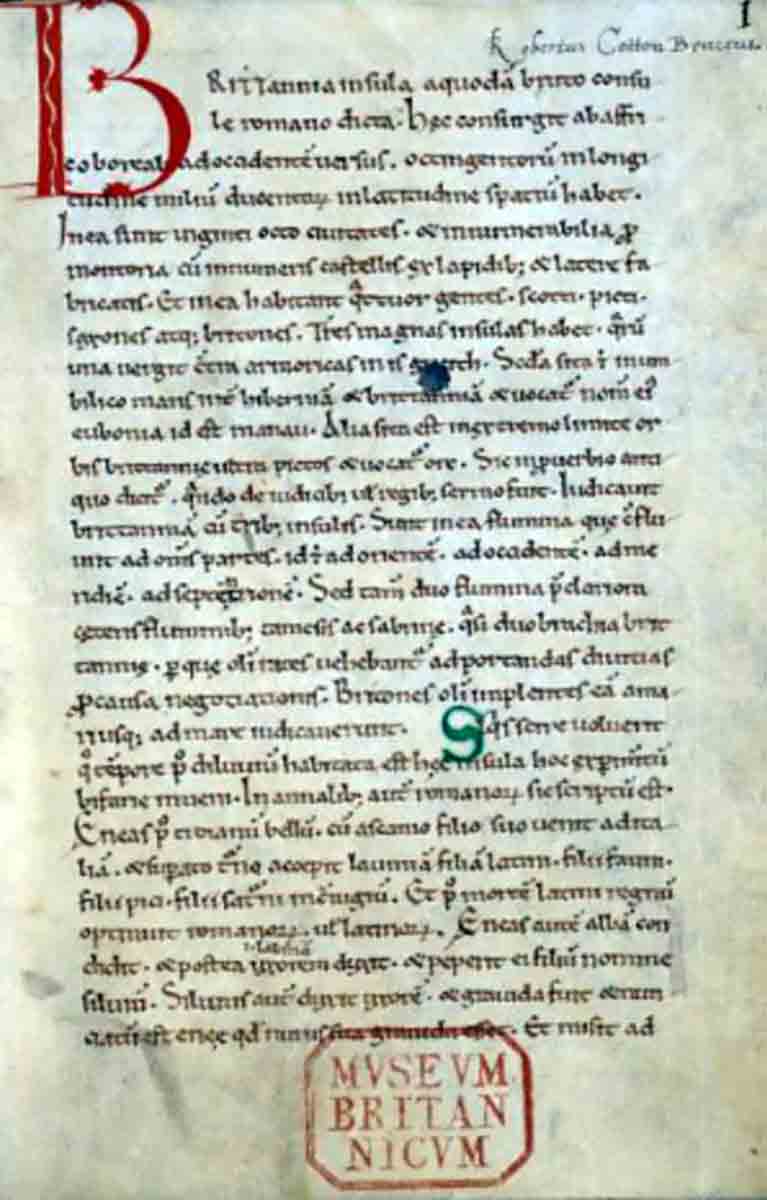 1
Robertus Cotton Bruceus.
BRITTannia insula a quodā bruto consu
le romano dicta. hęc consurgit ab affri
co boreali ad occidentē uersus. octingentorū in longi
tudine miliū ducentoꝝ in latitudine spatiū habet.
In ea sunt uiginti octo ciuitates. & innumerabilia ꝓ
montoria cū innumeris castellis ex lapidib; & latere fa
bricatis. Et in ea habitant qͣttuor gentes. scotti. picti.
saxones atq; britones. Tres magnas insulas habet. qͣrū
una uergit cͭra armoricas
bilico maris int̄ hiberniā & brittanniā & uocat᷑ nom̄ ei᷒
eubonia id est manau. Alia sita est in extremo limite or
bis brittannię ultra pictos & uocat᷑ orc. Sic in ꝓuerbio anti
quo dicit᷑. qͣndo de iudicib; uł regib; sermo fuit. Iudicauit
brittanniā cū trib; insulis. Sunt in ea flumina que
unt ad om̄s partes. id ē ad orientē. ad occidentē. ad me
ridiē. ad septētrionē. Sed tam̄ duo flumina p̄clariora
cęteris fluminib; tamesis ac sabrine. qͣsi duo brachia brit
tannię. ꝑ que oli rates uehebant᷑ ad portandas diuitias
ꝓ causa negociationis. Britones oli implentes eā a ma
ri usq; ad mare iudicauerunt. Sqͥs scire uoluerit
qͦ tēpore p᷒ diluuiū habitata est hęc insula hoc expertū
bifarie inueni. In annalib; autē romanoꝝ sic scriptū est.
Eneas p᷒ troianū bellū. cū ascanio filio suo uenit ad ita
liā. & supato t᷑no accepit lauiniā filiā latini. filii fauni.
filii pici. filii sat᷑ni Et p᷒ mortē latini regnū
optinuit romanoꝝ. uł latinoꝝ. Eneas autē albā con
didit. & postea uxorem duxit. & peperit ei filiū nomine
siluiū. Siluius aut̄ duxit uxorē. & grauida fuit &
ciatū est enęę qđ nurus sua grauida esset. Et misit ad
MVSEVM
BRITAN
NICVM